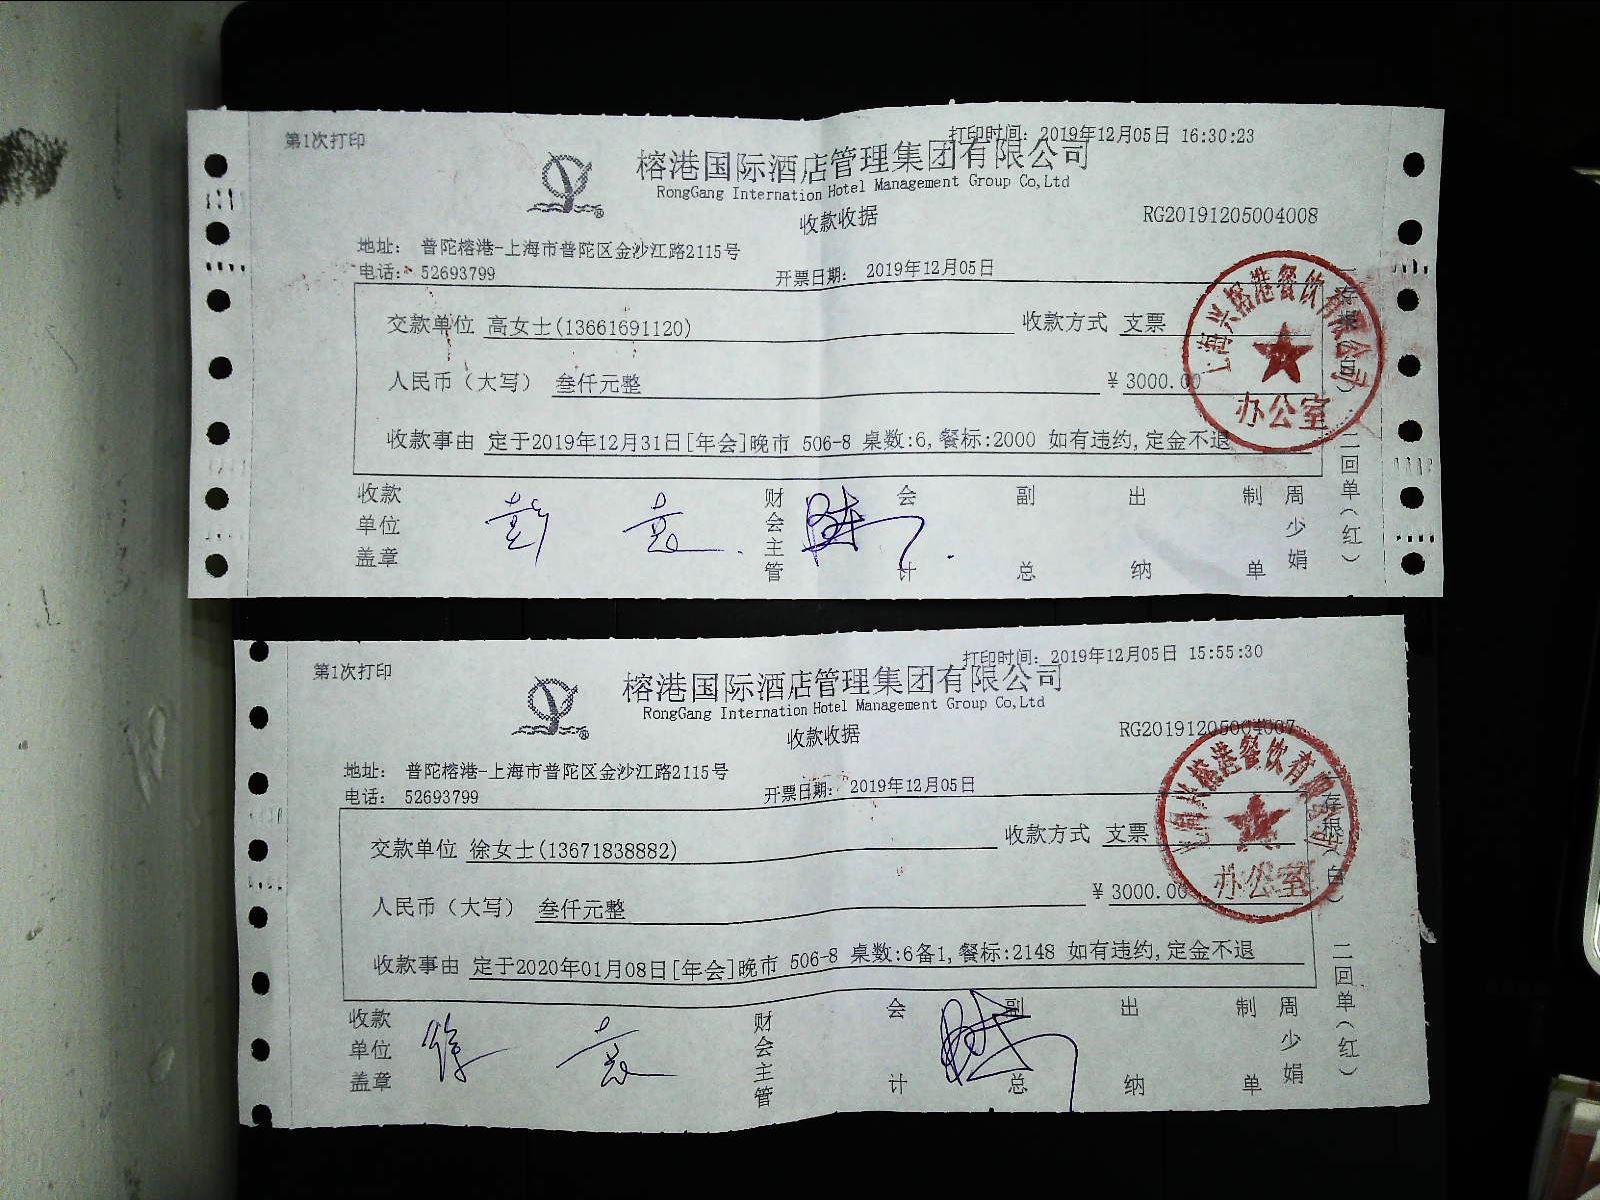 第1次打印
打印时间: 2019年12月05日 16:30:23
榕港国际酒店管理集团有限公司
RongGang Internation Hotel Management Group Co,Ltd
收款收据
RG20191205004008
地址: 普陀榕港-上海市普陀区金沙江路2115号
电话: 52693799
开票日期: 2019年12月05日
交款单位 高女士(13661691120) 收款方式 支票
人民币(大写) 叁仟元整 ¥ 3000.00
收款事由 定于2019年12月31日[年会]晚市 506-8 桌数:6,餐标:2000 如有违约,定金不退
收款单位盖章 财会主管 会计 副总 出纳 制单 周少娟
二回单(红)
上海兴榕港餐饮有限公司
办公室
第1次打印
打印时间: 2019年12月05日 15:55:30
榕港国际酒店管理集团有限公司
RongGang Internation Hotel Management Group Co,Ltd
收款收据
RG20191205004007
地址: 普陀榕港-上海市普陀区金沙江路2115号
电话: 52693799
开票日期: 2019年12月05日
交款单位 徐女士(13671838882) 收款方式 支票
人民币(大写) 叁仟元整 ¥ 3000.00
收款事由 定于2020年01月08日[年会]晚市 506-8 桌数:6备1,餐标:2148 如有违约,定金不退
收款单位盖章 财会主管 会计 副总 出纳 制单 周少娟
存根(白)
二回单(红)
上海兴榕港餐饮有限公司
办公室